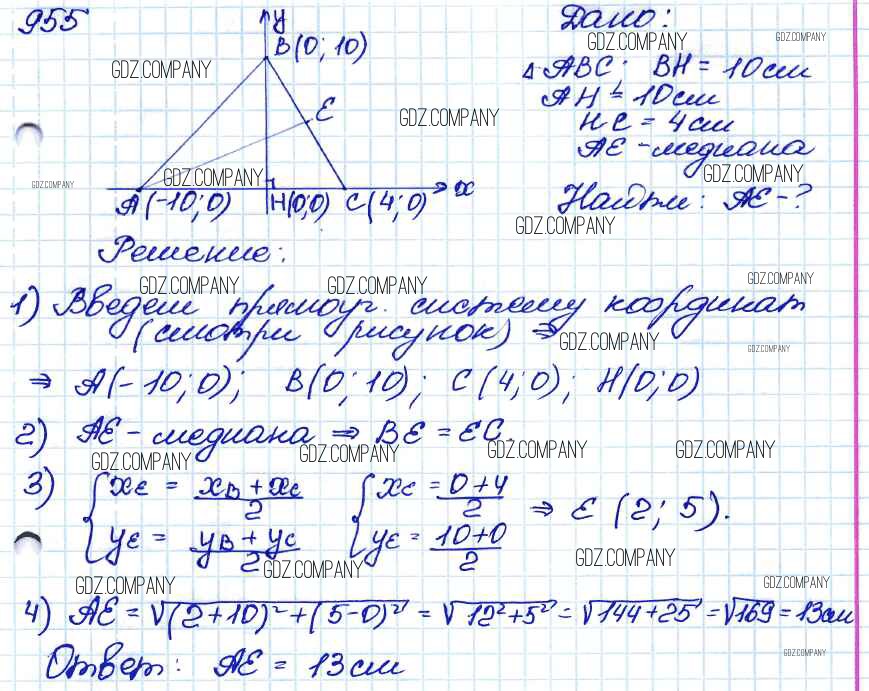 955
y
B(0; 10)
E
A(-10; 0)
H(0;0)
C(4; 0)
x
Дано:
Δ ABC. BH = 10см
AH = 10см
HC = 4см
AE - медиана
Найти: AE - ?
Решение:
1) Введем прямоуг. систему координат
(смотри рисунок) ⇒
⇒ A(-10; 0); B(0; 10); C(4; 0); H(0; 0)
2) AE - медиана ⇒ BE = EC.
3) { xE = (xB + xC)/2 { xE = (0+4)/2
yE = (yB + yC)/2 yE = (10+0)/2 ⇒ E (2; 5).
4) AE = √(2+10)² + (5-0)² = √12² + 5² = √144 + 25 = √169 = 13см
Ответ: AE = 13 см
GDZ.COMPANY
GDZ.COMPANY
GDZ.COMPANY
GDZ.COMPANY
GDZ.COMPANY
GDZ.COMPANY
GDZ.COMPANY
GDZ.COMPANY
GDZ.COMPANY
GDZ.COMPANY
GDZ.COMPANY
GDZ.COMPANY
GDZ.COMPANY
GDZ.COMPANY
GDZ.COMPANY
GDZ.COMPANY
GDZ.COMPANY
GDZ.COMPANY
GDZ.COMPANY
GDZ.COMPANY
GDZ.COMPANY
GDZ.COMPANY